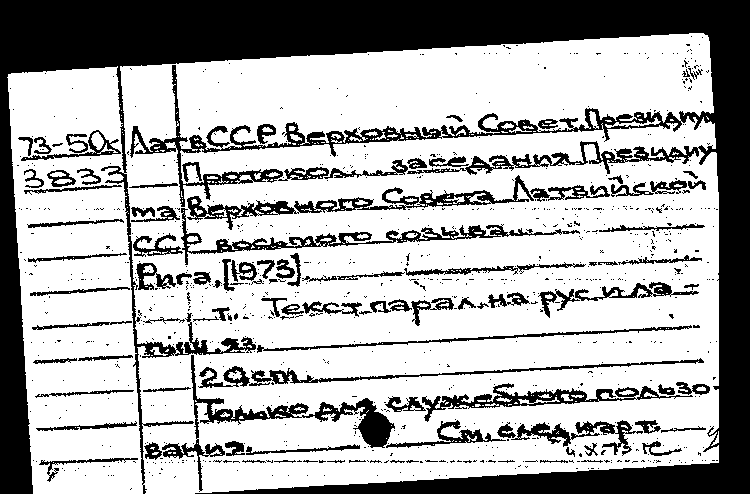 73-50к ЛатвССР. Верховный Совет. Президиум
3833 Протокол... заседания Президиу-
ма Верховного Совета Латвийской
ССР восьмого созыва...
Рига, [1973]
т. Текст парал. на рус. и ла-
тыш. яз.
20 см.
Только для служебного пользо-
вания. См. след. карт.
4.X.73